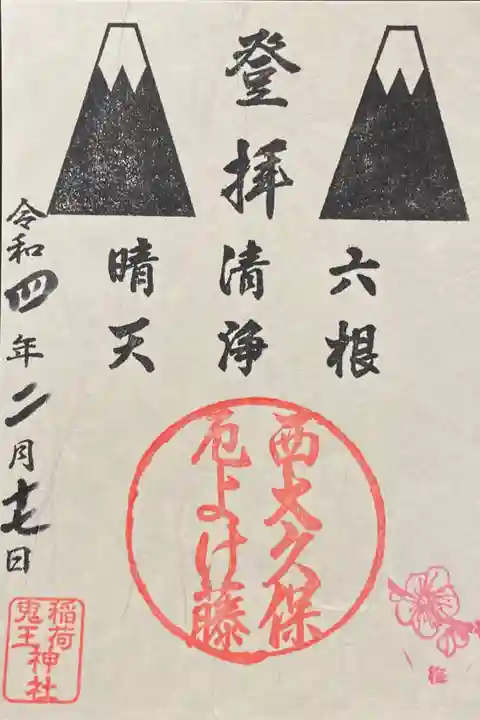 登拝
六根
清浄
晴天
令和四年二月十七日
西大久保
厄よけ藤
稲荷
鬼王神社